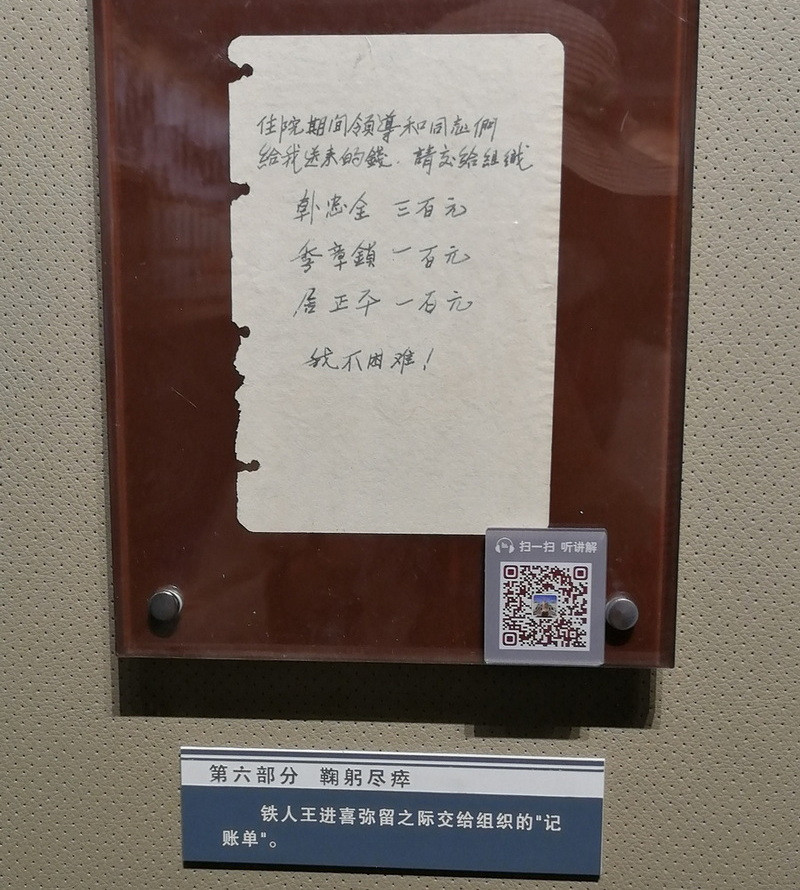 住院期间领导和同志們
給我送来的錢.請交給组織
韩忠全 三百元
季章鎖 一百元
居正平 一百元
我不困难!
扫一扫 听讲解
第六部分 鞠躬尽瘁
铁人王进喜弥留之际交给组织的"记
账单"。